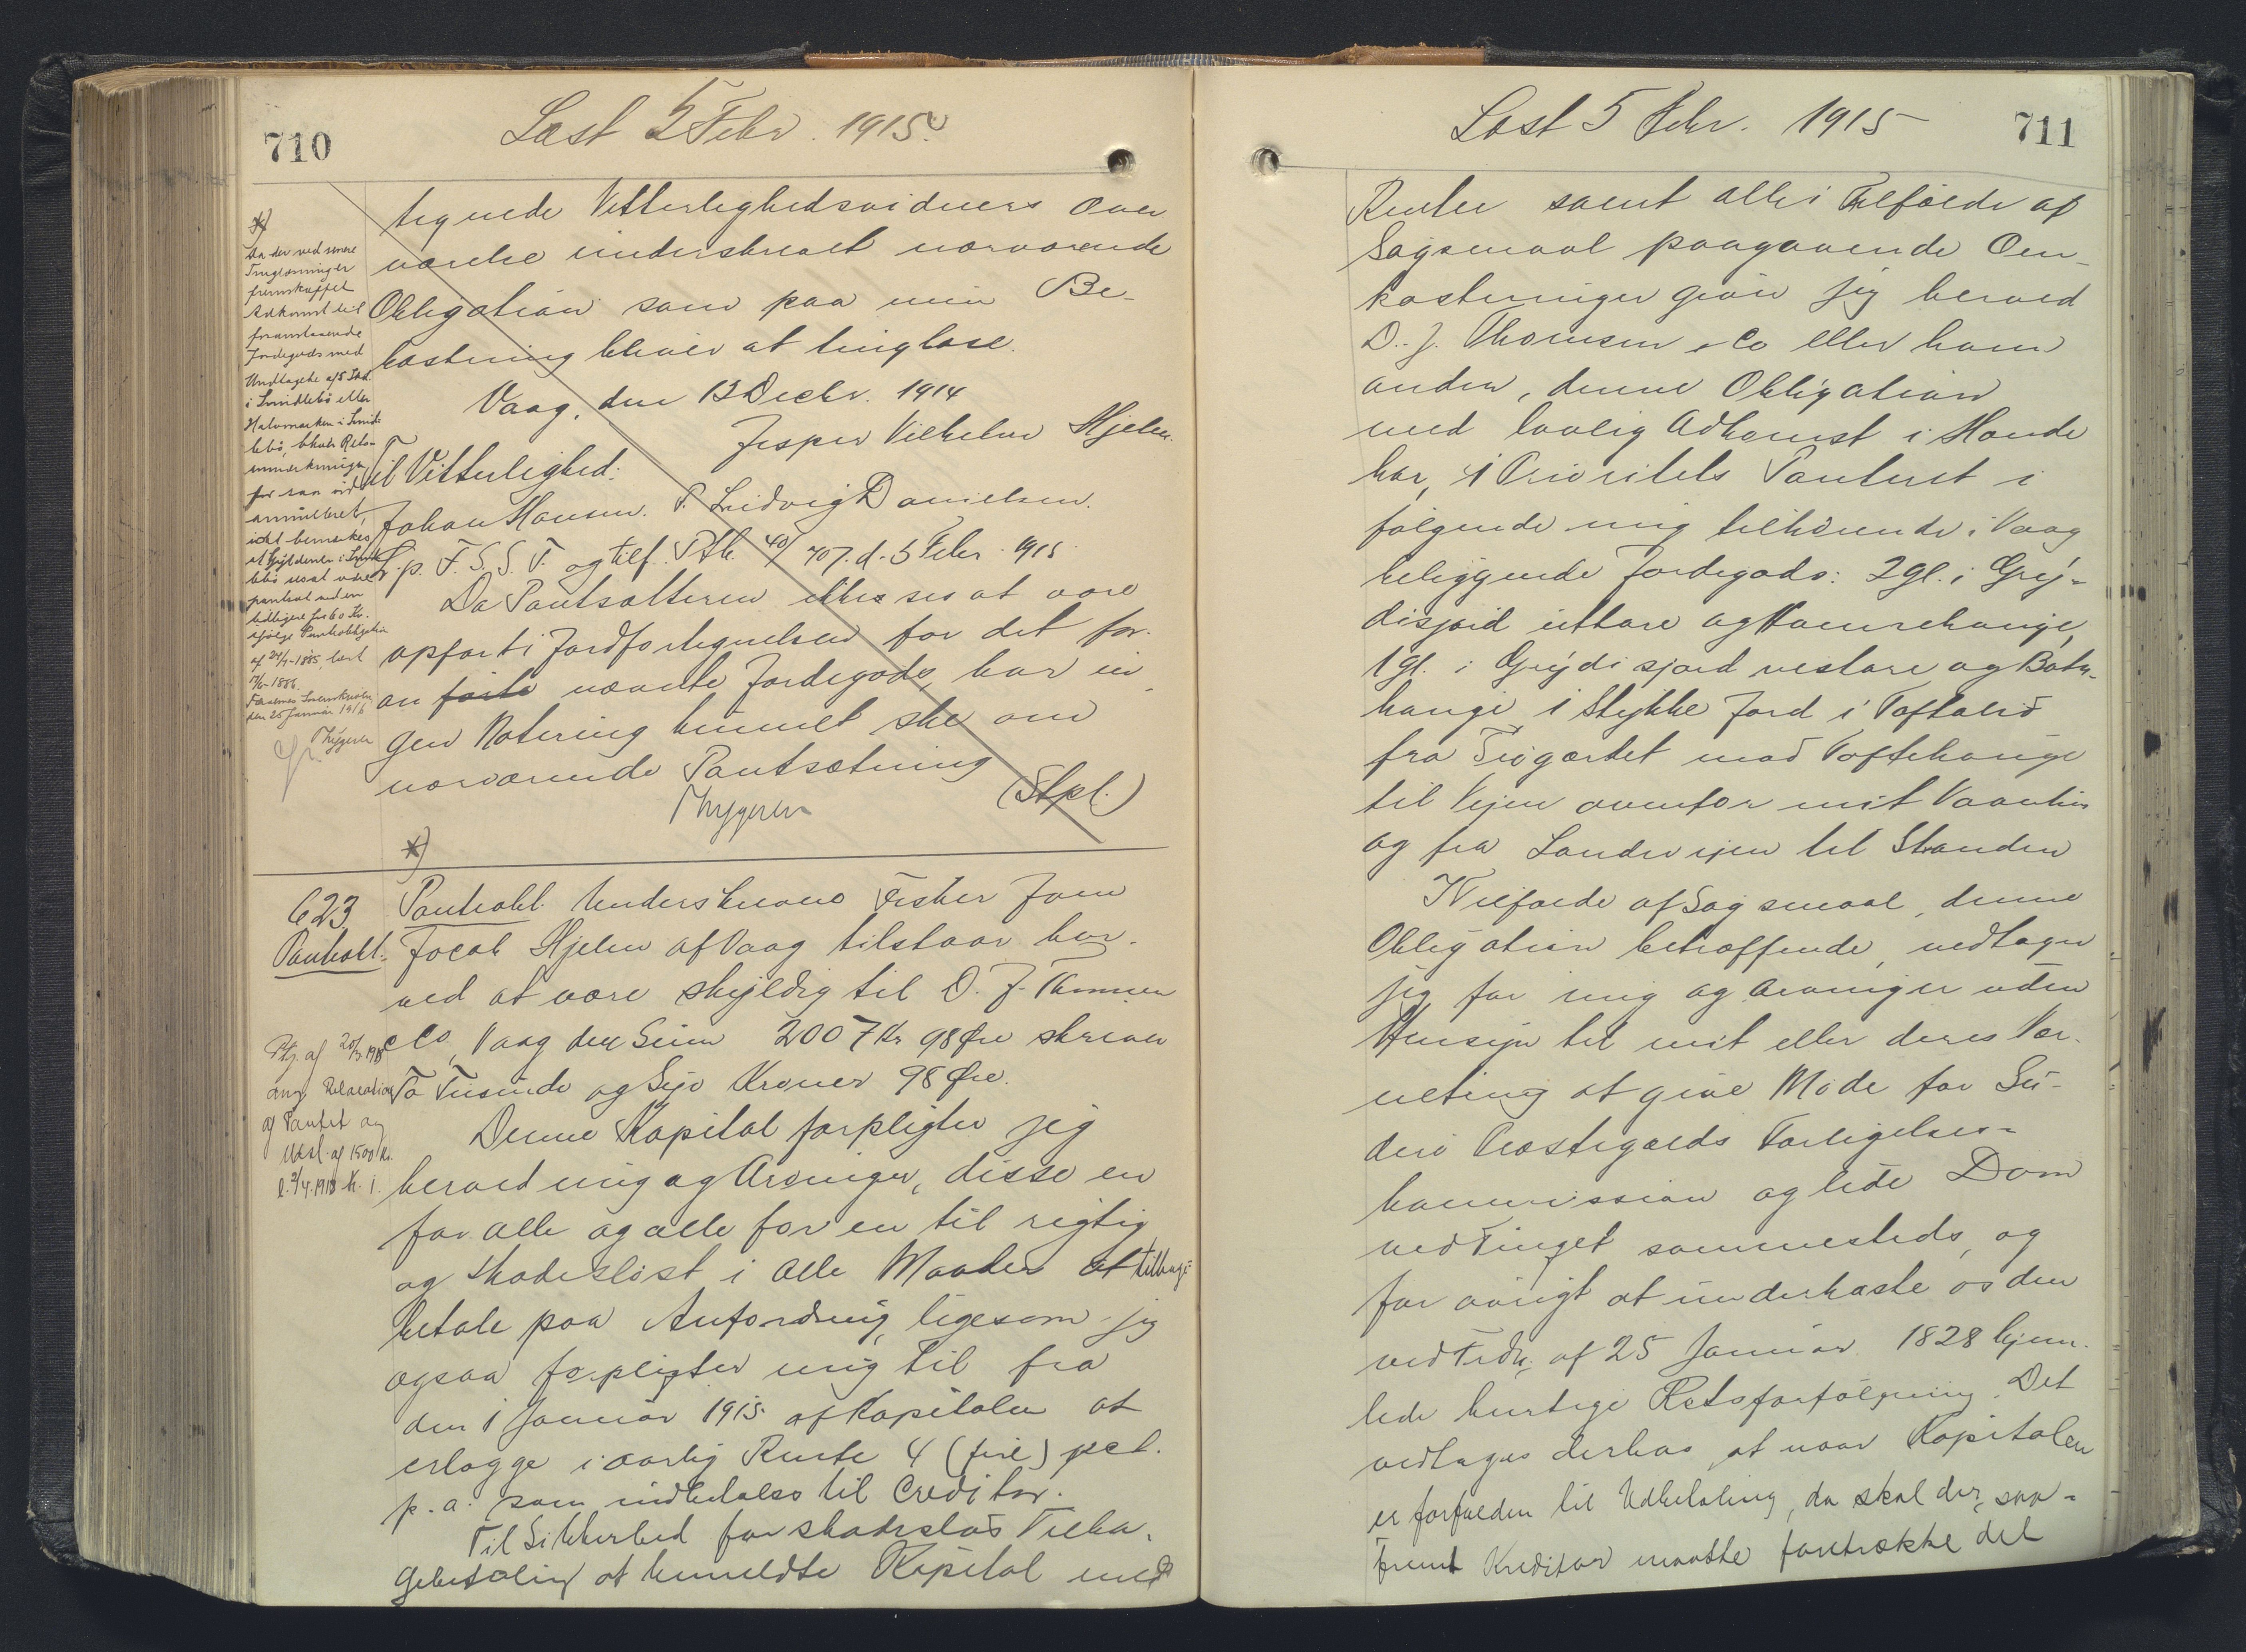 710
Læst 5 Febr. 1915.
tegnede Vitterlighedsvidners Over
værelse underskrevet nærværende
Obligation som paa min Be-
kostning bliver at tinglæse.
Vaag, den 13 Decbr. 1914
Jesper Vilhelm Hjelm.
Til Vitterlighed:
Johan Hansen. P. Ludvig Danielsen.
L. p. F. S. S. T. og tilf. Ptb. 40/707. d. 5 Febr. 1915.
Da Pantsætteren ikke ses at være
opført i Jordfortegnelsen for det for-
an førte nævnte Jordegods, har in-
gen Notering kunnet ske om
nærværende Pantsætning
Thygesen (Stpl.)
*)
*)
Da der ved senere
Tinglæsninger
fremskaffet
Adkomst til
foranstaaende
Jordegods med
Undtagelse af 5 Skd.
i
bliver Rets-
anmærkningen
for saa vidt
annulleret,
idet bemærkes
at Gyldenen i
pantsat
tidligere for 60 Kr.
ifølge Pantobligation
af 24/4-1885, læst
1886.
Færøernes Sorenskriveri
den 25 Januar 1916
Thygesen
623
Pantobl.
Pantobl. Underskrevne Fisker Joen
Jocob Hjelm af Vaag tilstaar her-
ved at være skyldig til D. J. Thomsen
& Co, Vaag den Sum 2007 Kr 98 Øre skriver
To Tusinde og Syv Kroner 98 Øre.
Denne Kapital forpligter jeg
herved mig og Arvinger, disse en
for alle og alle for en til rigtig
og skadesløst i alle Maader at tilbage-
betale paa Anfordring, ligesom jeg
ogsaa forpligter mig til fra
den 1 Januar 1915. af Kapitalen at
erlægge i aarlig Rente 4 (fire) pct.
p. a. som indbetales til Creditor.
Til Sikkerhed for skadesløs Tilba-
gebetaling af bemeldte Kapital med
Ptg. af 20/3 1918
ang. Relaxation
af Pantet og
Udsl. af 1500 Kr.
l. 2/4. 1918 h. i.
711
Læst 5 Febr. 1915
Renter samt alle i Tilfælde af
Søgsmaal paagaaende Om-
kostninger giver jeg herved
D. J. Thomsen & Co eller hvem
anden, denne Obligation
med lovlig Adkomst i Hænde
har, 1 Prioritets Panteret i
følgende mig tilhørende i Vaag
beliggende Jordegods: 2 gl. i Grej-
disjørd uttare og Hamrehauge,
1 gl. i Grejdisjørd vestare og Botn-
hauge, 1 Stykke Jord i Toftalið
fra Tiogærdet mod Toftehauge
til Vejen ovenfor mit Vaanhus
og fra Landevejen til Stranden
I Tilfælde af Søgsmaal, denne
Obligation betræffende, vedtager
jeg for mig og Arvinger uden
Hensyn til mit eller deres Vær-
neting at give Møde for Su-
derø Præstegælds Forligelses-
kommission og lide Dom
ved Tinget sammesteds, og
for øvrigt at underkaste os den
ved Frdn. af 25 Januar 1828 hjem-
lede hurtige Retsforfølgning. Det
vedtages derhos, at naar Kapitalen
er forfalden til Udbetaling, da skal der, saa-
fremt Kreditor maatte foretrække det